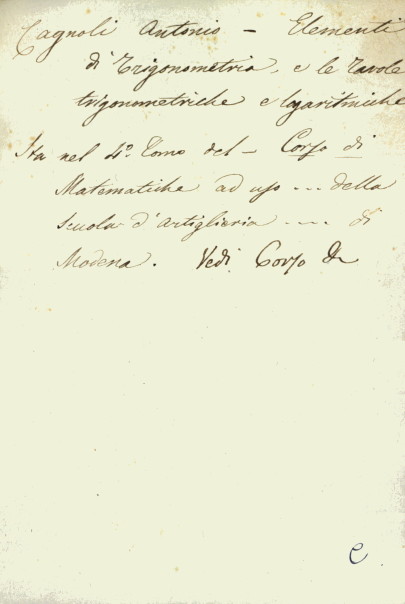 Cagnoli Antonio – Elementi
di Trigonometria, e le Tavole
trigonometriche e logaritmiche
Sta nel 4º. Tomo del – Corso di
Matematiche ad uso --- della
scuola d'artiglieria ---- di
Modena. Vedi Corso di
C